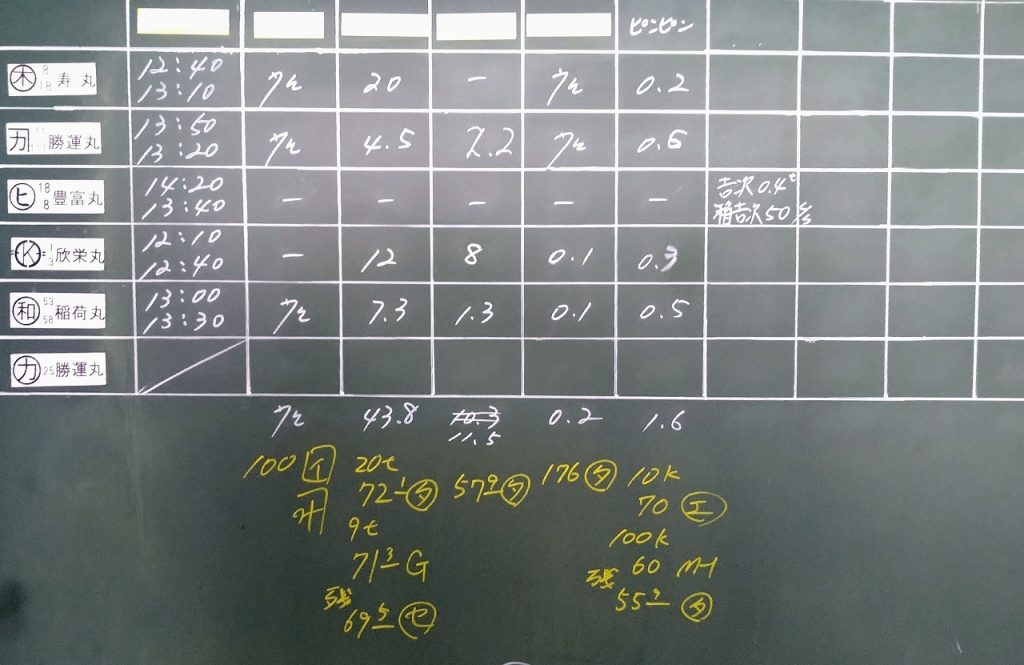 ピンピン
木 8 18 寿丸 12:40 13:10 クモ 20 ー クモ 0.2
カ 勝運丸 13:50 13:20 クモ 4.5 2.2 クモ 0.6
ヒ 18 8 豊富丸 14:20 13:40 ー ー ー ー ー 吉次0.4t
稚吉次50
K 1 3 欣栄丸 12:10 12:40 ー 12 8 0.1 0.3
和 53 58 稲荷丸 13:00 13:30 クモ 7.3 1.3 0.1 0.5
カ 25 勝運丸
クモ 43.8 10.3 0.2 1.6
11.5
100 イ 20t
72 1 タ 57 9 タ 176 タ 10K
70 エ
9t
100K
71 3 G
60 MH
残 69 5 セ
残 55 9 タ